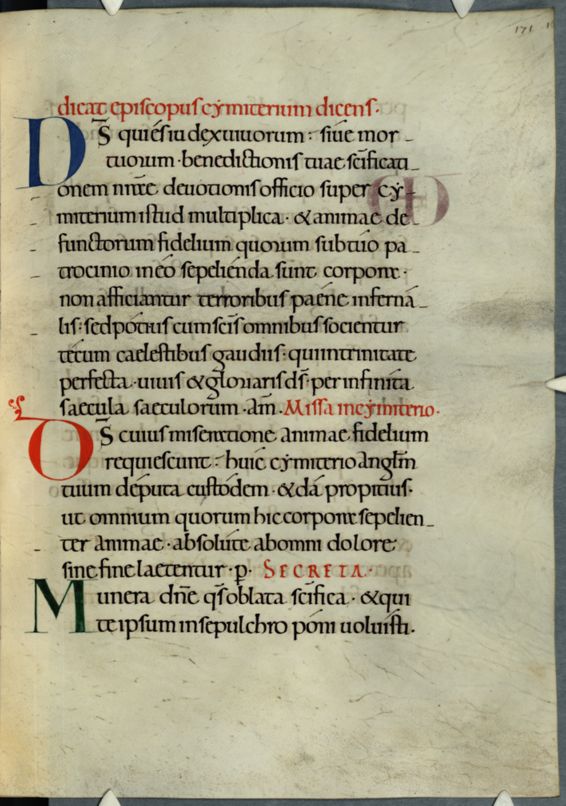 171
dicat episcopus cymiterium dicens·
DS̄ qui es iudex uiuorum· siue mor-
tuorum· benedictionis tuae sc̄ificati-
onem nr̄ae deuotionis officio super cy-
miterium istud multiplica· & animae de-
functorum fidelium quorum sub tuo pa-
trocinio in eo sepelienda sunt corpora·
non afficiantur terroribus paene inferna-
lis: sed potius cum sc̄is omnibus socientur
tecum caelestibus gaudiis: qui in trinitate
perfecta· uiuis & gloriaris ds̄· per infinita
saecula saeculorum· am̄· Missa in cymiterio·
DS̄ cuius miseratione animae fidelium
requiescunt: huic cymiterio angl̄m
tuum deputa custodem· & da propitius·
ut omnium quorum hic corpora sepelien-
tur animae· absolute ab omni dolore
sine fine laetentur· p̄· SECRETA·
Munera dn̄e qs̄ oblata sc̄ifica· & qui
te ipsum in sepulchro poni uoluisti·